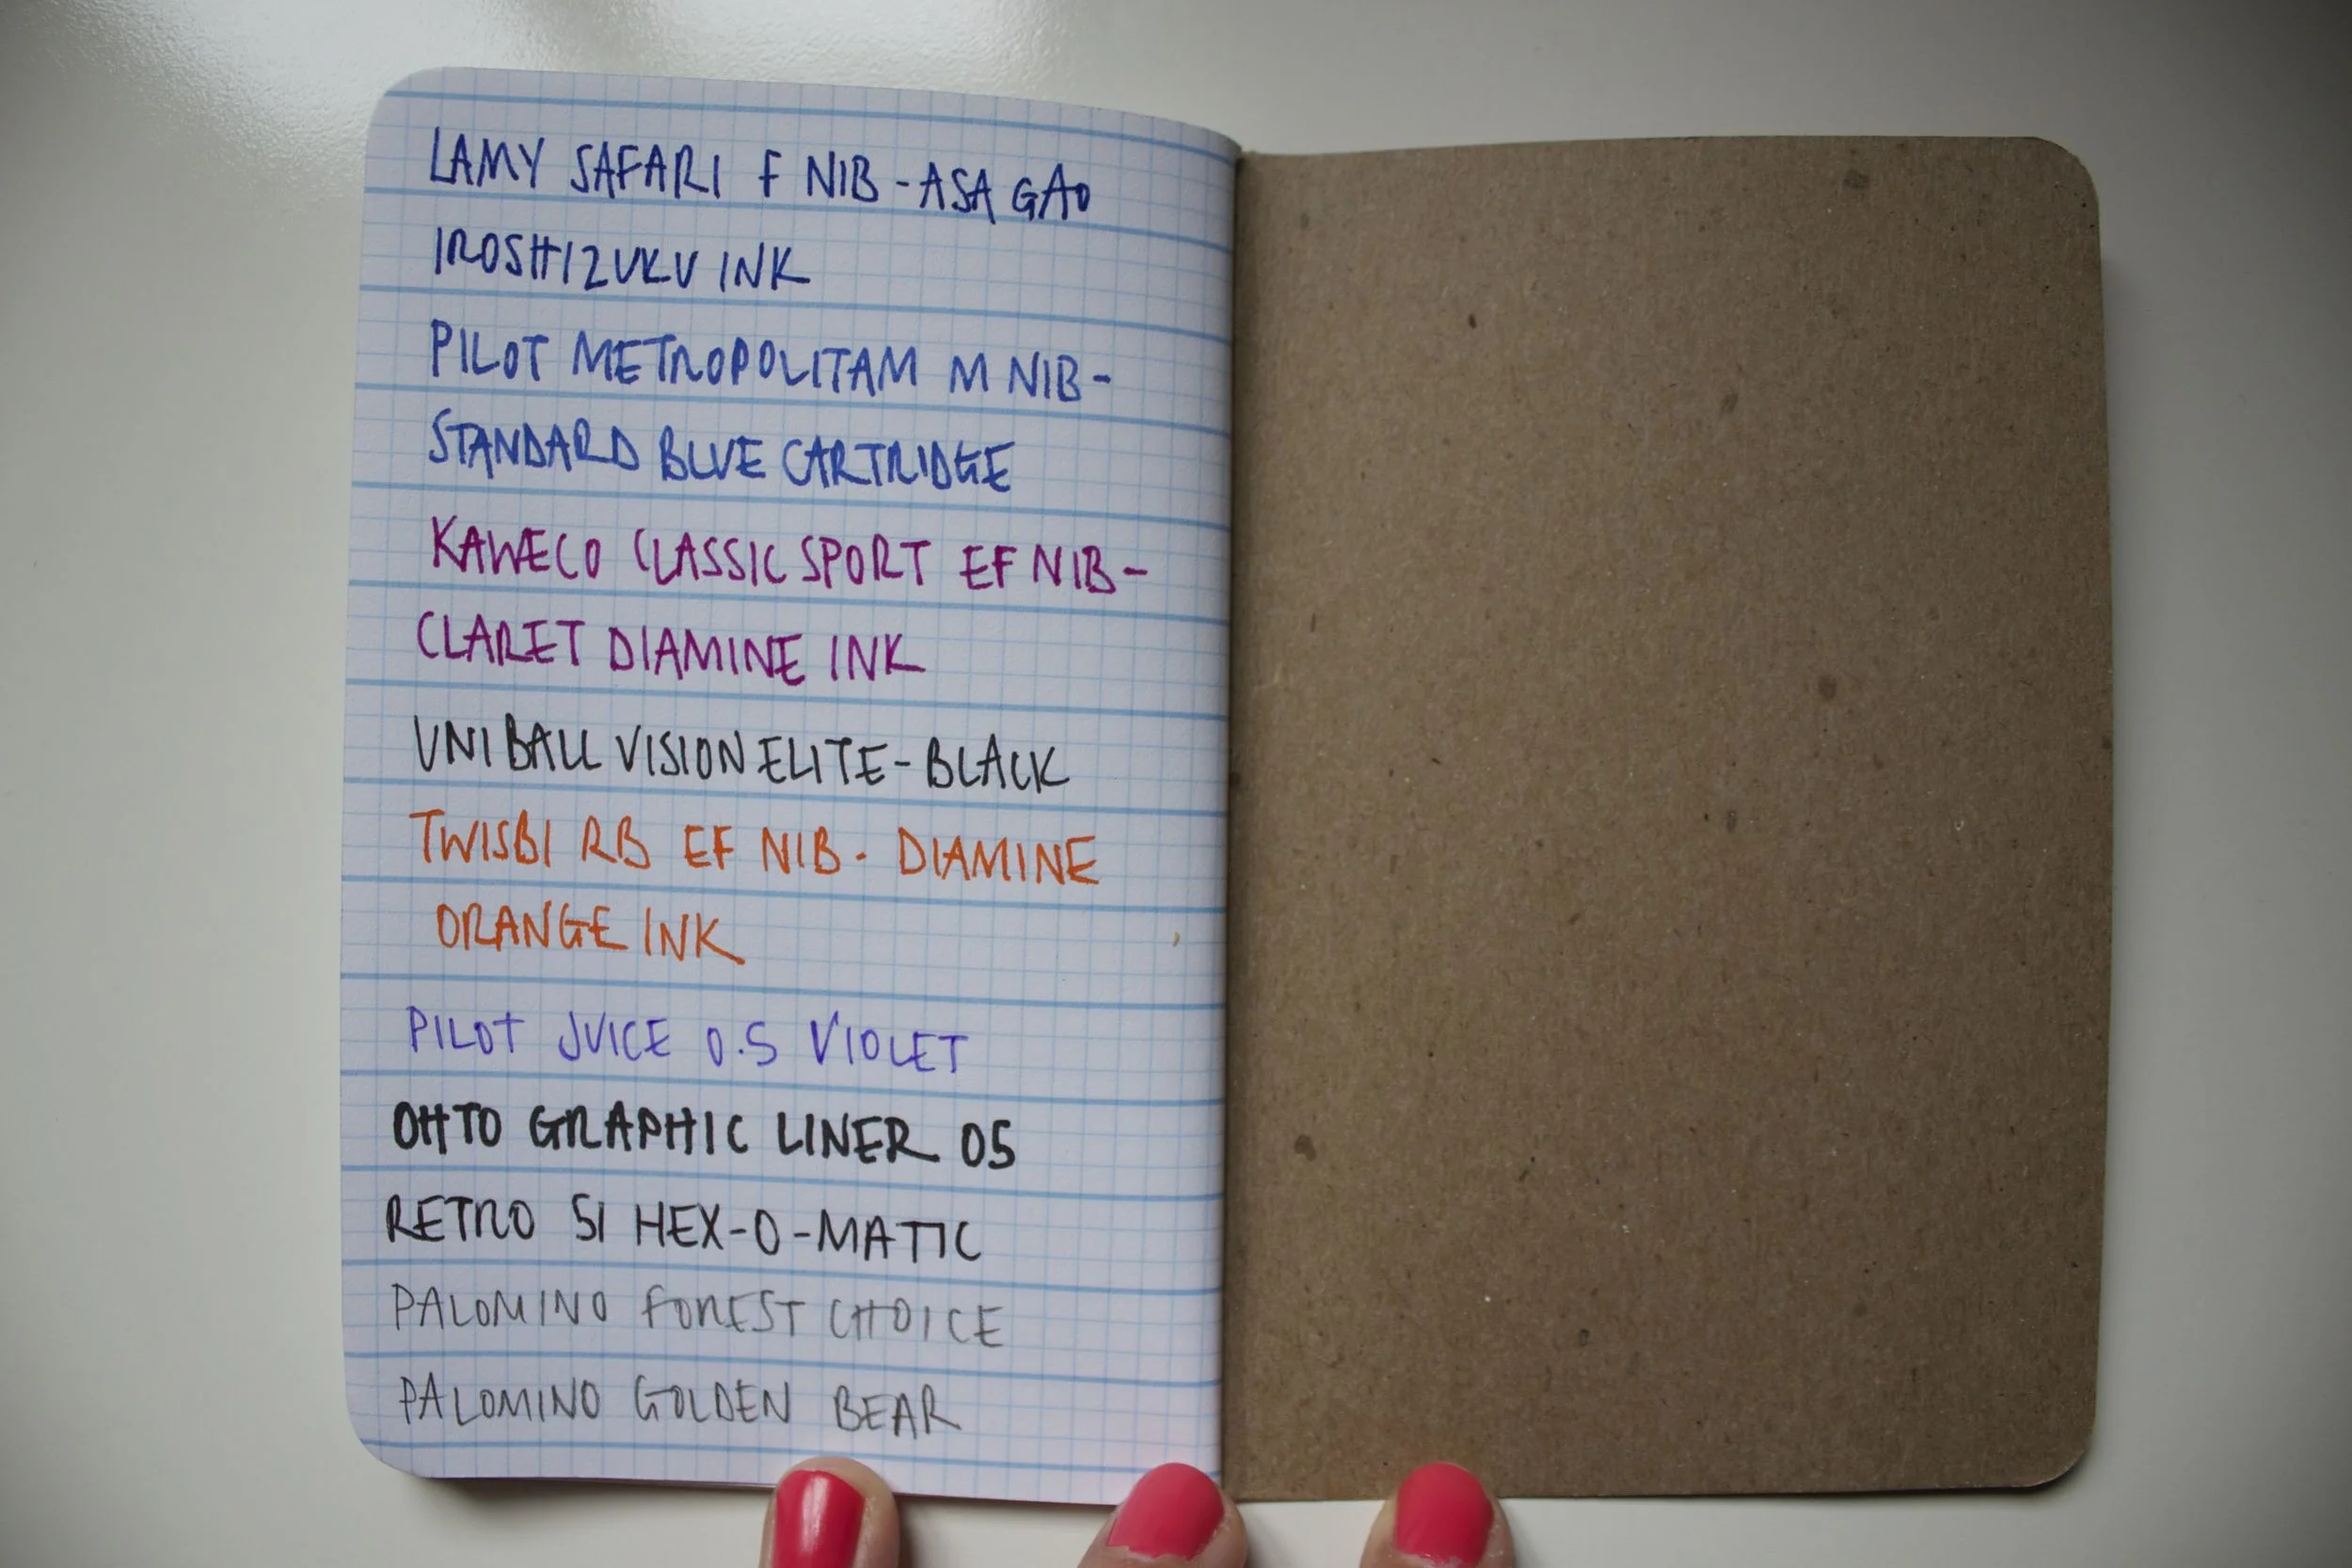 LAMY SAFARI F NIB - ASA GAO
IROSHIZUKU INK
PILOT METROPOLITAM M NIB -
STANDARD BLUE CARTRIDGE
KAWECO CLASSIC SPORT EF NIB -
CLARET DIAMINE INK
UNIBALL VISION ELITE - BLACK
TWISBI RB EF NIB - DIAMINE
ORANGE INK
PILOT JUICE 0.5 VIOLET
OHTO GRAPHIC LINER 05
RETRO 51 HEX-O-MATIC
PALOMINO FOREST CHOICE
PALOMINO GOLDEN BEAR